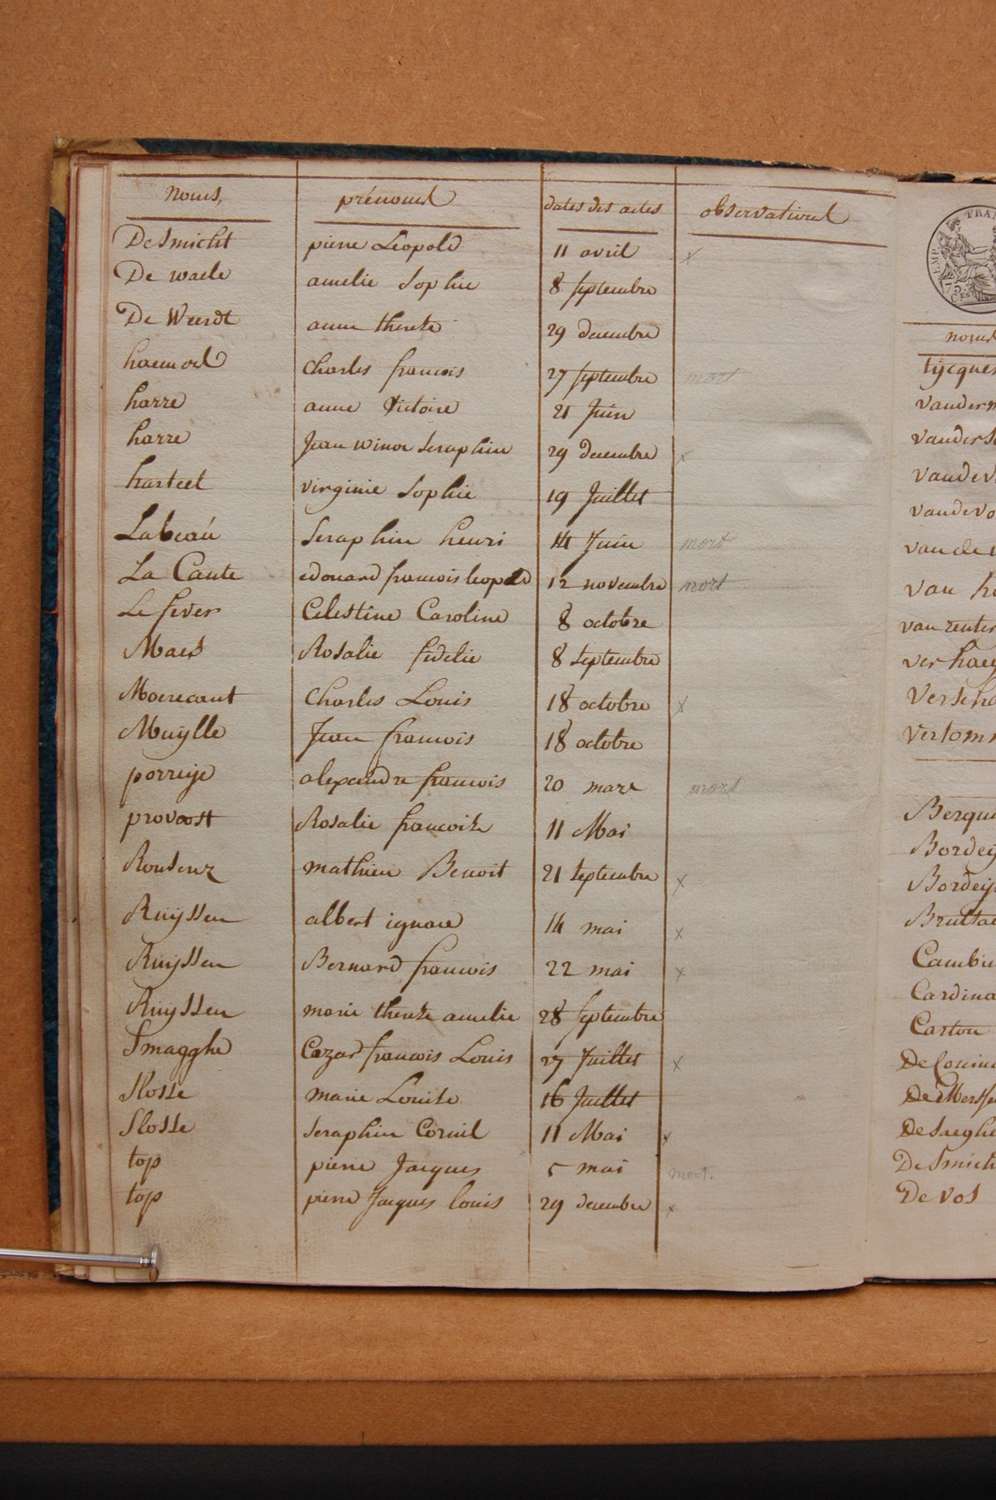 noms, prénoms dates des actes observations
DeSmicht pierre Léopold 11 avril x
De waele amelie Sophie 8 septembre
De Weerdt anne therese 29 decembre
haemoel charles francois 27 septembre mort
harre anne Victoire 21 Juin
harre Jean winoc Seraphin 29 decembre x
harteel virginie Sophie 19 Juillet
Labeau Seraphin henri 14 Juin mort
La Cante edouard francois leopold 12 novembre mort
Le fever Celestine Caroline 8 octobre
Maes Rosalie fidelie 8 septembre
Moerecant Charles Louis 18 octobre x
Muÿlle Jean francois 18 octobre
porreije alexandre francois 20 mars mort
provoost Rosalie francoise 11 Mai
Rousenz mathieu Benoit 21 septembre x
Ruÿssen albert ignace 14 mai x
Ruijssen Bernard francois 22 mai x
Ruÿssen marie therese amelie 28 septembre
Smagghe Cezar francois Louis 27 Juillet x
Slosse marie Louise 16 Juillet
Slosse Seraphin Corneil 11 Mai x
top pierre Jacques 5 mai mort.
top pierre Jacques louis 29 decembre x
noms
tÿcques
vanderm
vanderse
vandev
vandevo
van de
van he
van renter
verhaeg
Verscha
Vertomm
Berqui
Bordeÿ
Bordeÿ
Bruttae
Cambie
Cardina
Carton
De Coninc
De Mers
De saeghe
De Smich
De vos